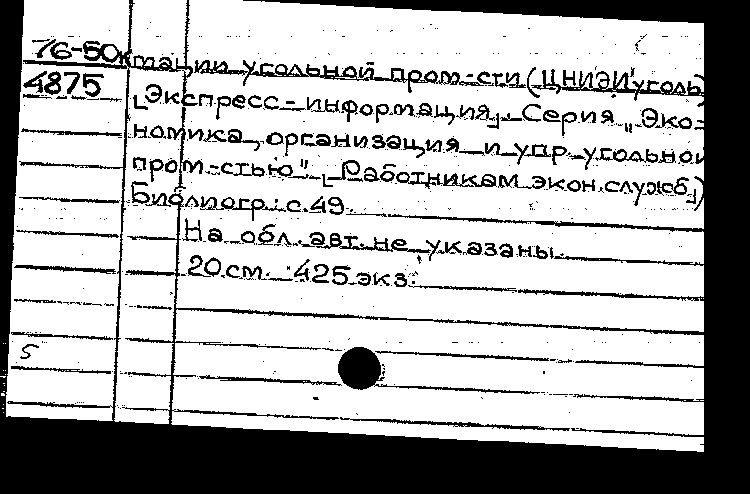 76-50ктации угольной пром-сти (ЦНИЭИуголь)
4875
[Экспресс-информация]. Серия „Эко-
номика, организация и упр. угольной
пром-стью" [Работникам экон. служб])
Библиогр.: с. 49.
На обл. авт. не указаны.
20 см. 425 экз.
5